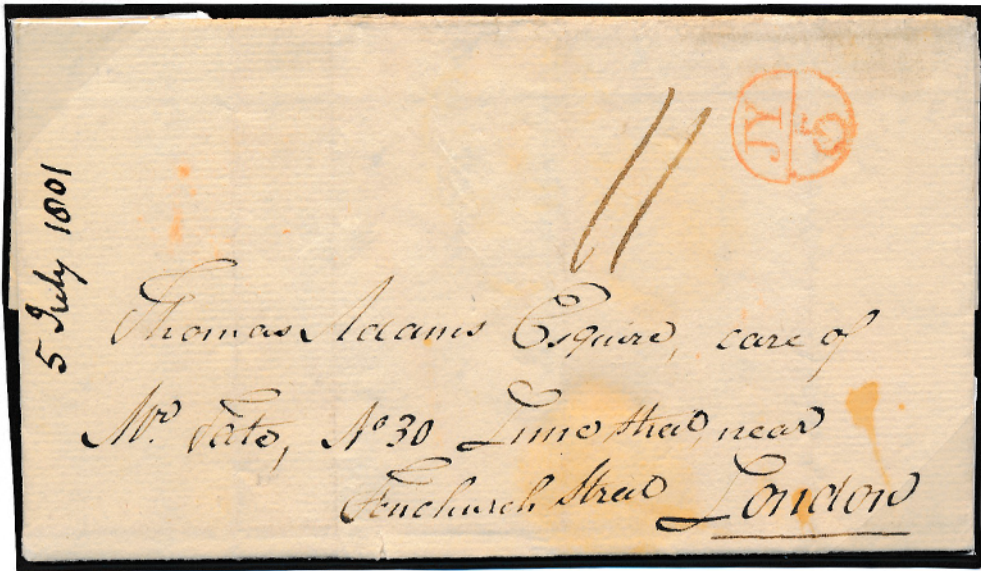 JY
5
11
5 July 1801
Thomas Adams Esquire, care of
Mr. Tate, No 30 Lime Street, near
Fenchurch Street London